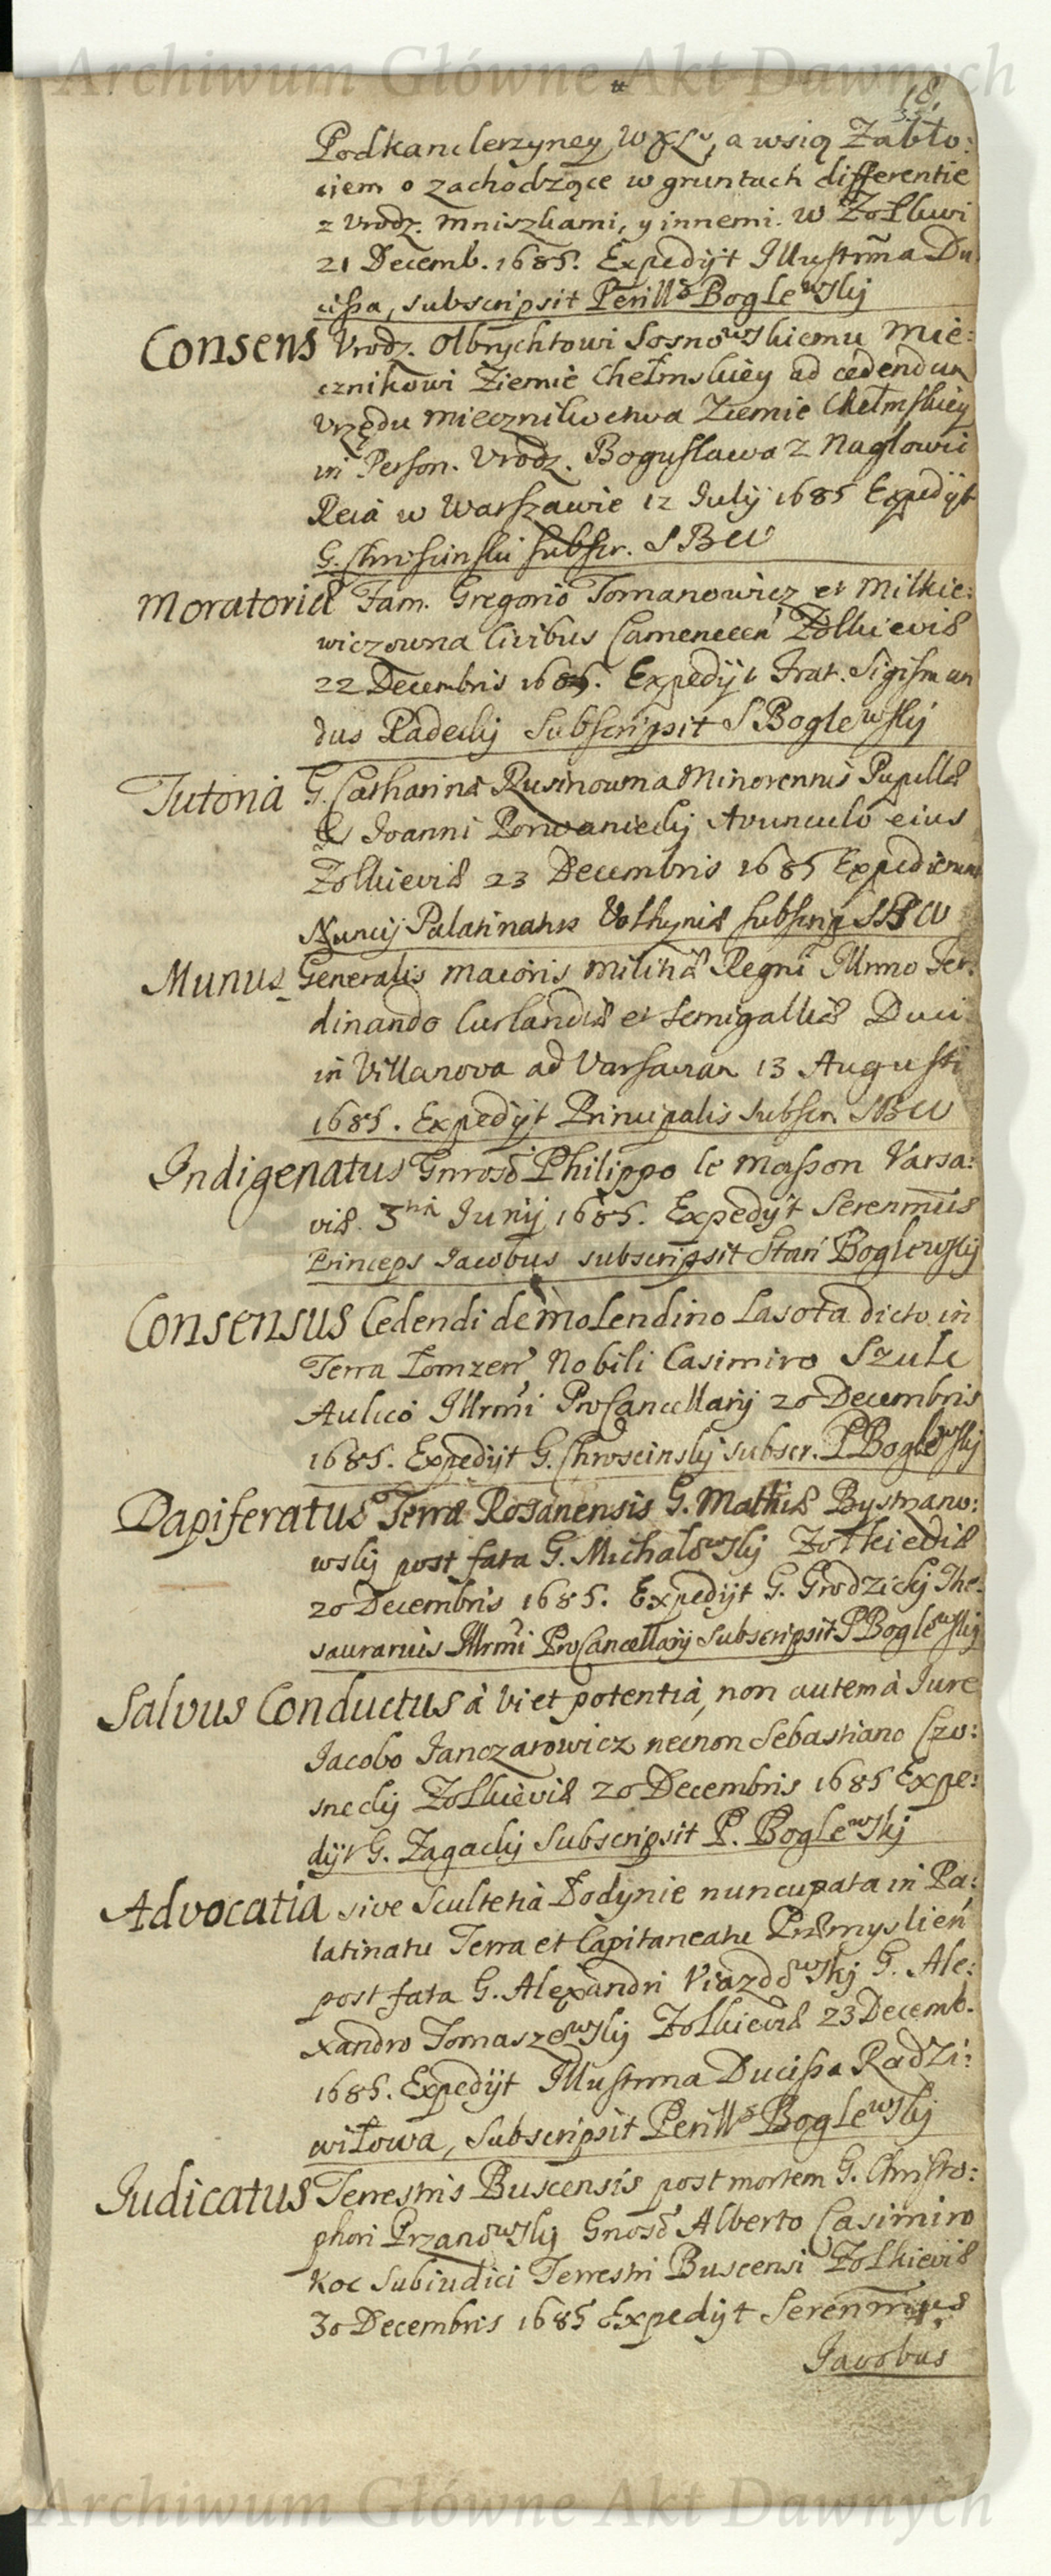 Archiwum Główne Akt Dawnych
18.
Podkanclerzyney W X L, a wsią Zabło:
ciem o zachodzące w gruntach differentie
z Vrodz. Mniszkami, y innemi. w Zołkwi
21 Decemb. 1685. Expedijt Illustrma Du
cissa, subscripsit Perills Boglewskj
Consens Vrodz. Olbrychtowi Sosnowskiemu Mie:
cznikowi Ziemie Chełmskiey ad cedendum
Vrzędu Miecznikowstwa Ziemie Chełmskiey
in Person. Vrodz. Bogusława z Nagłowic
Reia w Warszawie 12 July 1685 Expedijt
G. Chroscinski subscr. S B W
Moratoria Fam. Gregorio Tomanowicz et Milkie:
wiczowna Civibus Camenecen Zolkieviae
22 Decembris 1685. Expedijt Frat. Sigismun
dus Radeckj Subscripsit S Boglewskj
Tutoria G. Catharinae Rusinowna Minorennis Pupillae
G Joanni Porwanieckj Avunculo eius
Zolkieviae 23 Decembris 1685 Expedierunt
Nuncij Palatinatus Volhyniae subscrip S B W
Munus Generalis Maioris Militiae Regni Illmo Fer:
dinando Curlandiae et Semigalliae Duci
in Villanova ad Varsaviam 13 Augusti
1685. Expedijt Principalis subscr. S B W
Indigenatus Gnroso Philippo le Masson Varsa:
viae. 3tia Junij 1685. Expedijt Serenmus
Princeps Jacobus subscripsit Stan Boglewskij
Consensus Cedendi de Molendino Lasota dicto in
Terra Łomzen Nobili Casimiro Szulc
Aulico Illrmi ProCancellarij 20 Decembris
1685. Expedijt G. Chroscinskj subscr. P Boglewskj
Dapiferatus Terrae Rosanensis G. Mathiae Bystrano:
wskj post fata G. Michalowskj Zołkieviae
20 Decembris 1685. Expedijt G. Grodzickj The:
saurarius Illrmi ProCancellarij Subscripsit P Boglewskj
Salvus Conductus à vi et potentia, non autem à Jure
Jacobo Janczarowicz necnon Sebastiano Czo:
sneckj Zolkieviae 20 Decembris 1685 Expe:
dijt G. Zagackj Subscripsit P. Boglewskj
Advocatia sive Scultetia Dodynie nuncupata in Pa:
latinatu Terra et Capitaneatu Praemyslien
post fata G. Alexandri Viazdowskj G. Ale:
xandro Tomaszewskj Zolkieviae 23 Decemb.
1685. Expedijt Illustrma Ducissa Radzi:
wiłowa, Subscripsit Perills Boglewskj
Judicatus Terrestris Buscensis post mortem G. Christo:
phori Przanowskj Gnoso Alberto Casimiro
Koc Subiudici Terrestri Buscensi Zolkieviae
30 Decembris 1685 Expedijt Serenmus
Jacobus
Archiwum Główne Akt Dawnych